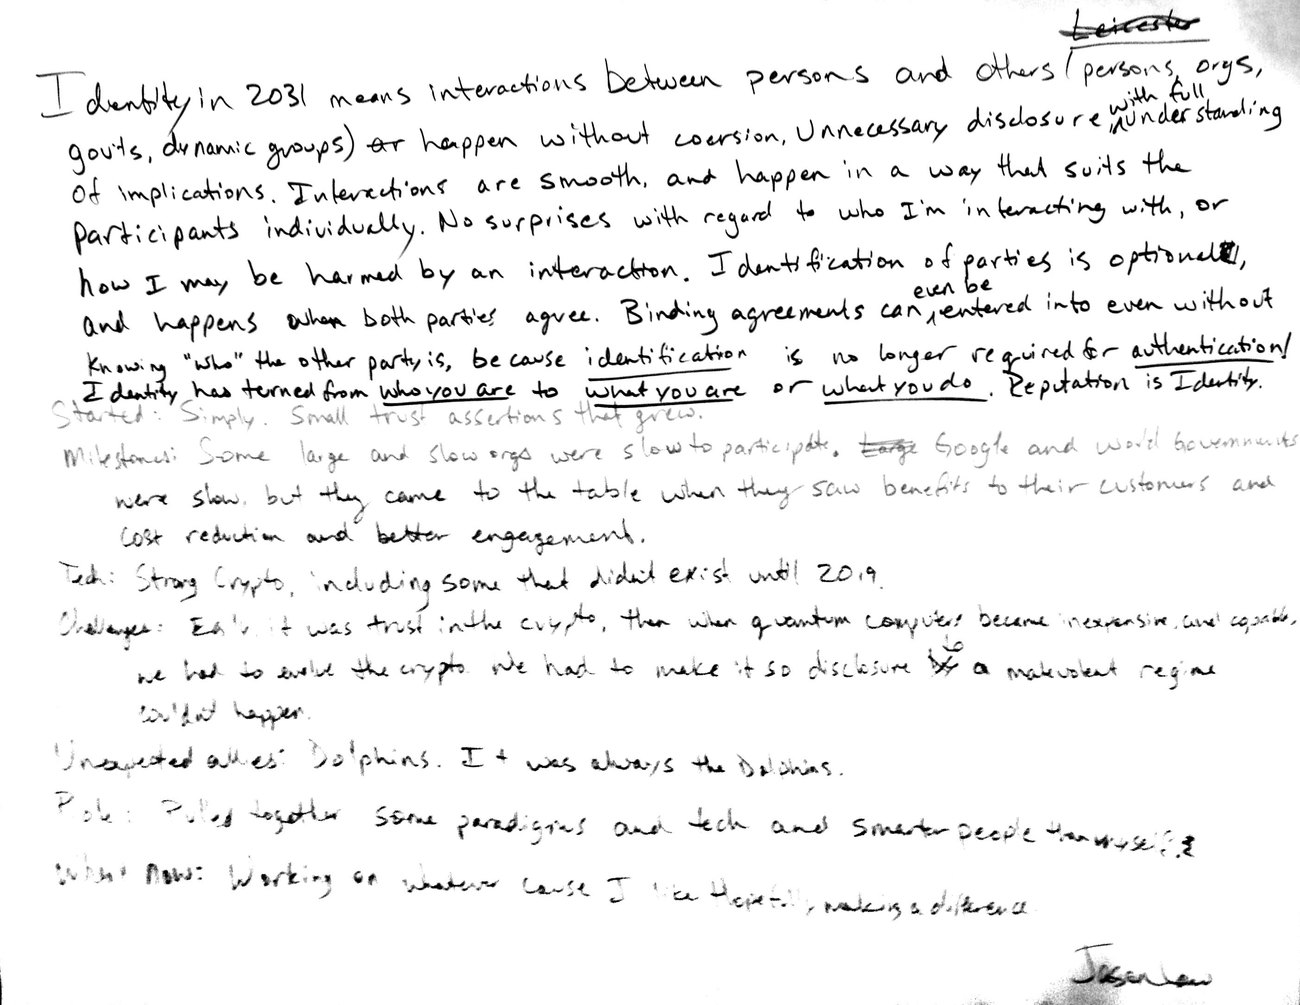 Leicester
Identity in 2031 means interactions between persons and others (persons, orgs,
gov'ts, dynamic groups) or happen without coersion, Unnecessary disclosure with full understanding
of implications. Interactions are smooth, and happen in a way that suits the
participants individually. No surprises with regard to who I'm interacting with, or
how I may be harmed by an interaction. Identification of parties is optional,
and happens when both parties agree. Binding agreements can even be entered into even without
knowing "who" the other party is, because identification is no longer required for authentication!
Identity has terned from who you are to what you are or what you do. Reputation is Identity.
Started: Simply. Small trust assertions that grew.
Milestones: Some large and slow orgs were slow to participate. Large Google and world Governments
were slow, but they came to the table when they saw benefits to their customers and
cost reduction and better engagement.
Tech: Strong Crypto, including some that didn't exist until 2019.
Challenges: Early it was trust in the crypto, then when quantum computers became inexpensive, and capable,
we had to evolve the crypto. We had to make it so disclosure by to a malevolent regime
couldn't happen.
Unexpected allies: Dolphins. It was always the Dolphins.
Role: Pulled together some paradigms and tech and smarter people than myself.
What now: Working on whatever cause I like Hopefully making a difference.
Jason Law